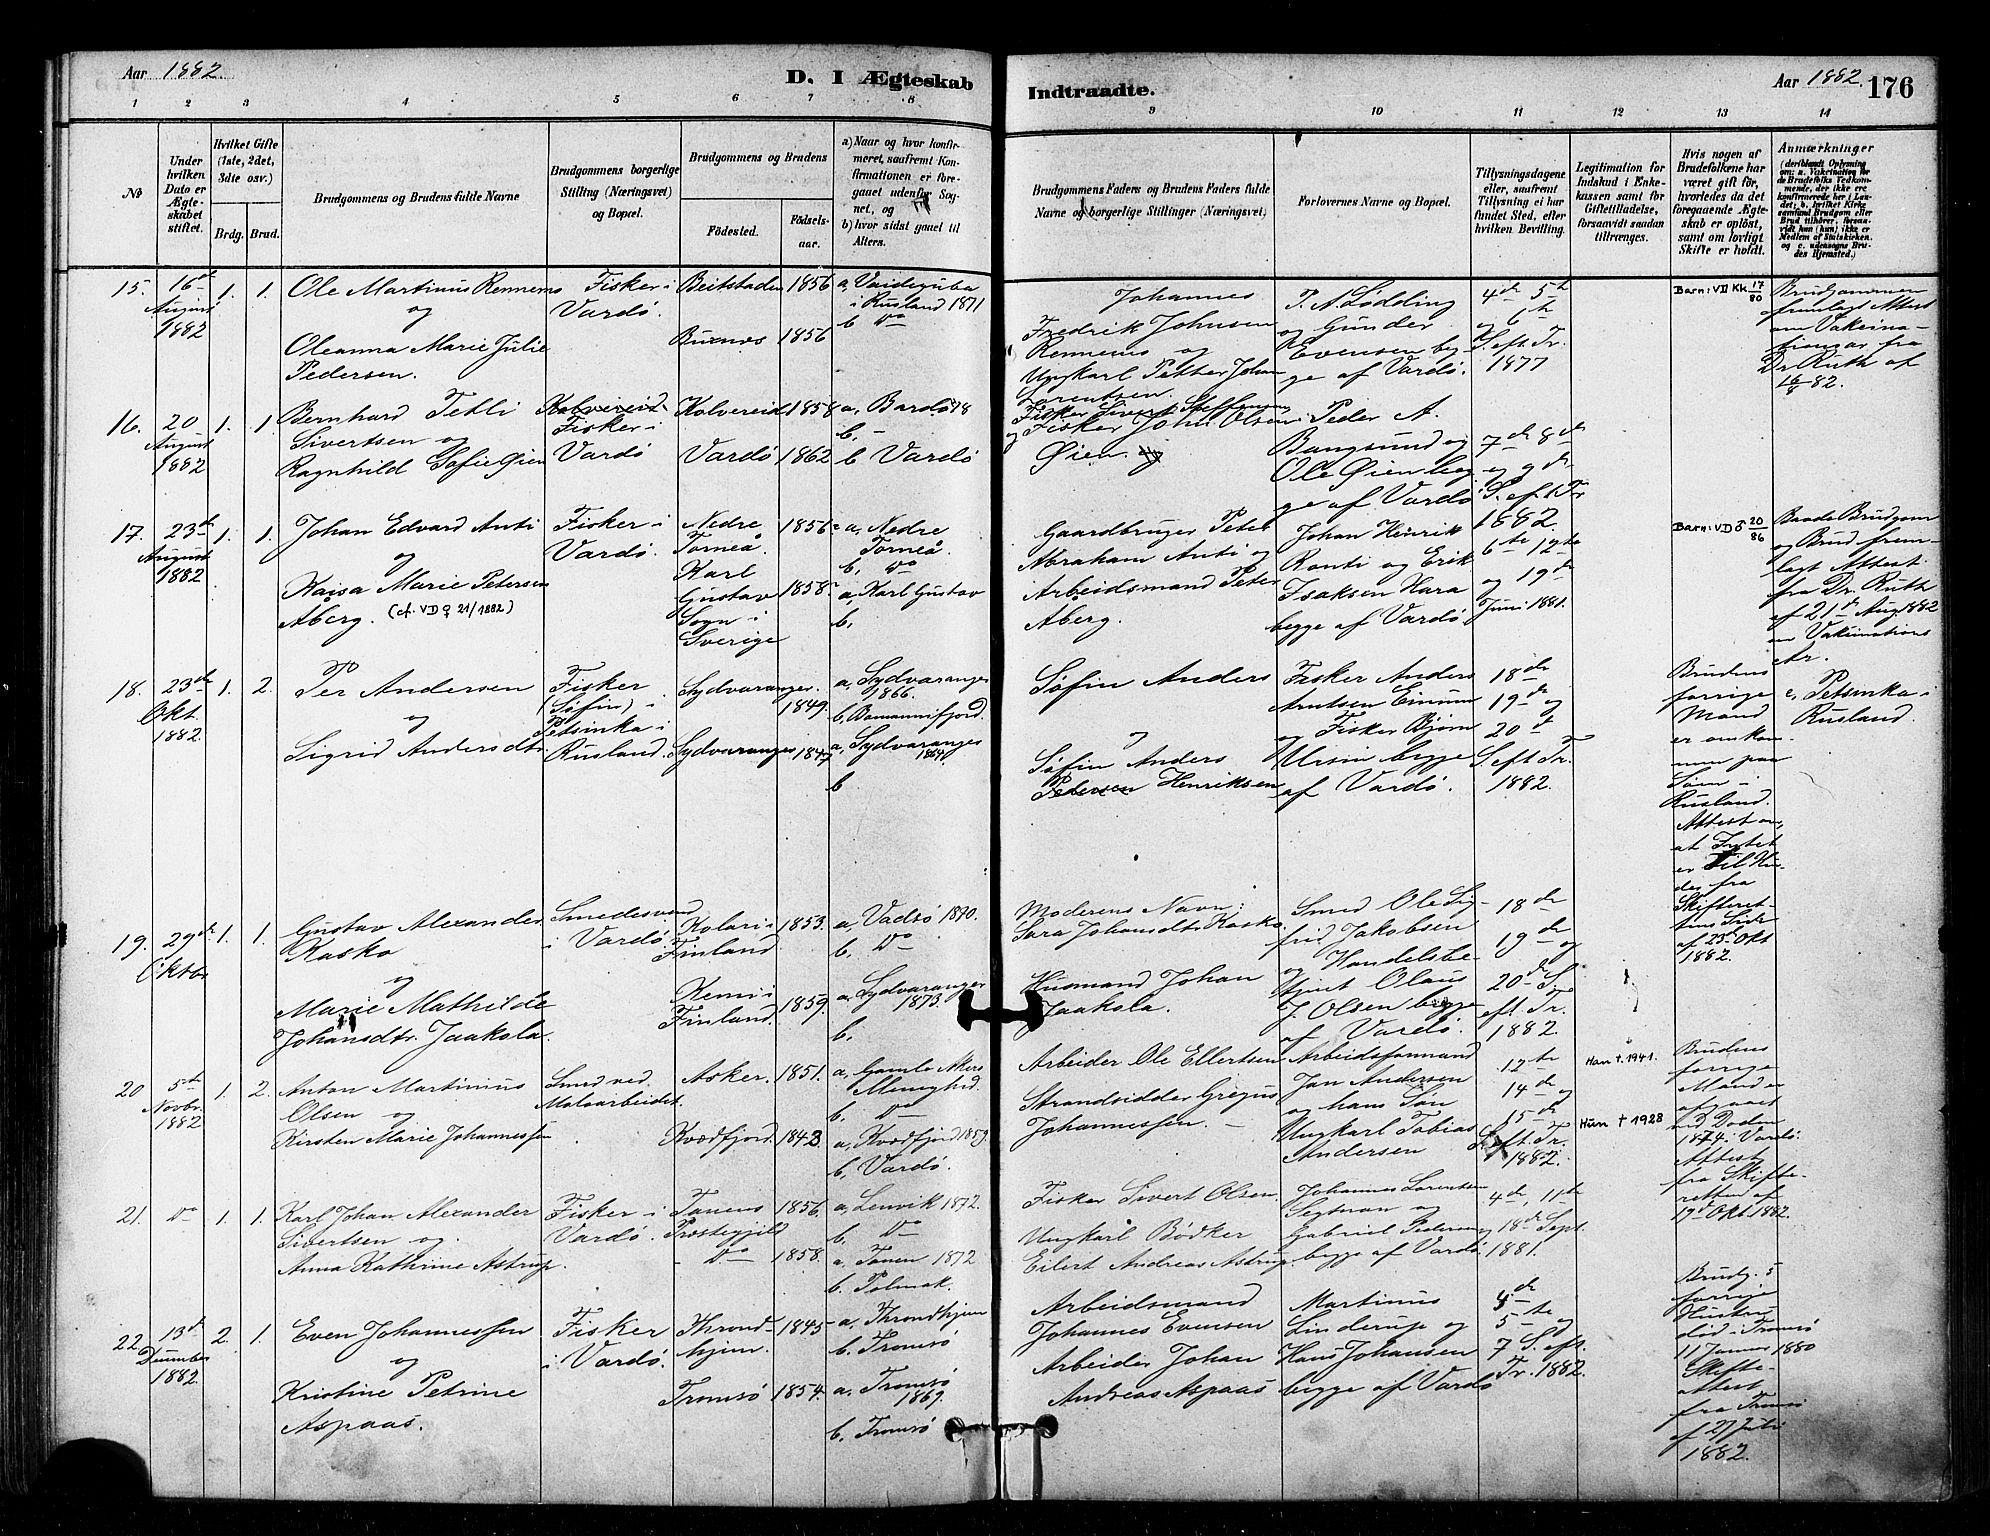 Aar 1882.
D. I Ægteskab
Indtraadte.
Aar 1882.
176
1 2 3 4 5 6 7 8 9 10 11 12 13 14
No
Under hvilken Dato er Ægte-skabet stiftet.
Hvilket Gifte (1ste, 2det, 3dte osv.)
Brdg. Brud.
Brudgommens og Brudens fulde Navne
Brudgommens borgerlige Stilling (Næringsvei) og Bopæl.
Brudgommens og Brudens
Födested.
Födsels-aar.
a) Naar og hvor konfir-meret, saafremt Kon-firmationen er fore-gaaet udenfor Sog-net, og
b) hvor sidst gaaet til Alters.
Brudgommens Faders og Brudens Faders fulde Navne og borgerlige Stillinger (Næringsvei)
Forlovernes Navne og Bopæl.
Tillysningsdagene eller, saafremt Tillysning ei har fundet Sted, efter hvilken Bevilling.
Legitimation for Indskud i Enke-kassen samt for Giftetilladelse, forsaavidt saadan tiltrænges.
Hvis nogen af Brudefolkene har været gift för, hvorledes da det foregaaende Ægte-skab er oplöst, samt om lovligt Skifte er holdt.
Anmærkninger
15. 16de August 1882
1. 1.
Ole Martinus Rennems
og
Oleanna Marie Julie
Pedersen.
Fisker i
Vardö.
Beitstaden 1856
Buxnes 1856
a, Vaideguba
i Rusland 1871
b do
Johannes
Fredrik Johnsen
Rennems og
Ungkarl Petter Johan
Lorentsen.
P. A. Lödding
og Gunder
Evensen beg-
ge af Vardö.
4de 5te
og 6te
S. eft. Tr.
1877
Barn: VD Kk 17/80
Brudgommen
fremlagt Attest
om Vakcina-
tionen fra
Dr Ruth af
16/8 82.
16. 20 August 1882
1. 1
Bernhard Tetli
Sivertsen og
Ragnhild Sofie Öien
Kolvereid
Fisker i
Vardö
Kolvereid 1858
Vardö 1862
a, Bardö 78
b, -
b Vardö
Fisker Sivert Steffensen
og Fisker John Olsen
Öien. og
Peder A.
Bangsund og
Ole Öien beg-
ge af Vardö
7de 8de
og 9de
S. eft Tr
1882.
17. 23de August 1882
1. 1.
Johan Edvard Anti
og
Kaisa Marie Petersen
Åberg. (cf. VD ♀ 21/1882)
Fisker i
Vardö.
Nedre
Torneå.
Karl
Gustav
Sogn i
Sverige
1856
1858
a, Nedre
Torneå
b, do
a, Karl Gustav
b,
Gaardbruger Peter
Abraham Anti og
Arbeidsmand Peter
Åberg.
Johan Henrik
Ronti og Erik
Isaksen Hara
begge af Vardö
6te 12te
og 19de
Juni 1881.
Barn: VD ♂ 20/86
Baade Brudgom
og Brud frem-
lagt Attest
fra Dr. Ruth
af 21de Aug. 1882
om Vakcinations
Ar.
18. 23de Okt. 1882.
1. 2.
Per Andersen
og
Sigrid Andersdtr.
Fisker
(Söfin) i
Petsinka i
Rusland.
Sydvaranger.
1849.
Sydvaranges 1847
a, Sydvaranger
1866.
b,
a, Sydvaranges
1864.
b
Söfin Anders
og
Söfin Anders
Petersen Henriksen
Fisker Anders
Arntsen Einum
og Fisker Björn
Ursin begge
af Vardö.
18de
19de og
20de
S. eft Tr.
1882.
Brudens
forrige
Mand
er omkom-
men paa
Söen i
Rusland.
Attest om,
at Intet
er til Hin-
der fra
Skifteret-
tens Side
af 23de Okt
1882.
c, Petsinka i
Rusland.
19. 29de Oktbr
1. 1.
Gustav Alexander
Kasko
og
Marie Mathilde
Johansdtr. Jaakola.
Smedesvend
i Vardö.
Kolari i
Finland
1853.
Kemi i
Finland.
1859.
a, Vadsö 1870.
b. do
a, Sydvaranger
1873.
b,
Moderens Navn:
Sara Johansdtr. Kasko
Husmand Johan
Jaakola.
Smed Ole Sig-
frid Jakobsen
og Handelsbe-
tjent Olaus
J. Olsen begge
af Vardö.
18de
19de og
20de S.
eft. Tr.
1882.
20 5te Novbr. 1882
1. 2.
Anton Martinius
Olsen og
Kirsten Marie Johannessen
Smed ved
Moloarbeidet.
Asker. 1851.
Kvædfjord. 1843.
a, Gamle Akers
Menighed.
b. do
a, Kvædfjord 1859.
b, Vardö.
Arbeider Ole Ellertsen
Strandsidder Gregus
Johannessen.
Arbeidsformand
Jan Andersen
og hans Sön
Ungkarl Tobias
Andersen
12te
14de og
15de
S. eft. Tr.
1882.
Han † 1941.
Hun † 1928
Brudens
forrige
Mand er
afgaaet
ved Döden
1874 i Vardö.
Attest
fra Skifte-
retten af
19de Okt. 1882.
21. do
1. 1.
Karl Johan Alexander
Sivertsen og
Anna Kathrine Astrup.
Fisker i
Vardö.
Tanens
Præstegjeld
do
1856.
1858.
a, Lenvik 1872.
b. do
a. Tanen 1872
b. Polmak.
Fisker Sivert Olsen,
Ungkarl Bödker
Eilert Andreas Astrup.
Johannes Lorentsen
og
Gabriel Pedersen
begge af Vardö.
4de, 11te
og 18de Sept.
1881.
22. 13de Decembr 1882.
2. 1.
Even Johannessen
og
Kristine Petrine
Aspaas.
Fisker
i Vardö.
Thrond-
hjem.
1845
Tromsö 1854.
a, Throndhjem
b. Tromsö
a. Tromsö
1869.
b, Tromsö
Arbeidsmand
Johannes Evensen
Arbeider Johan
Andreas Aspaas
Martinus
Linderup og
Hans Johansen
begge af Vardö
4de
5te og
7 S. eft.
Tr. 1882.
Brudg.s
forrige
Hustru
död i Tromsö
11 Januar 1880
Skifte-
attest
fra Tromsö
af 27 Juli
1882.